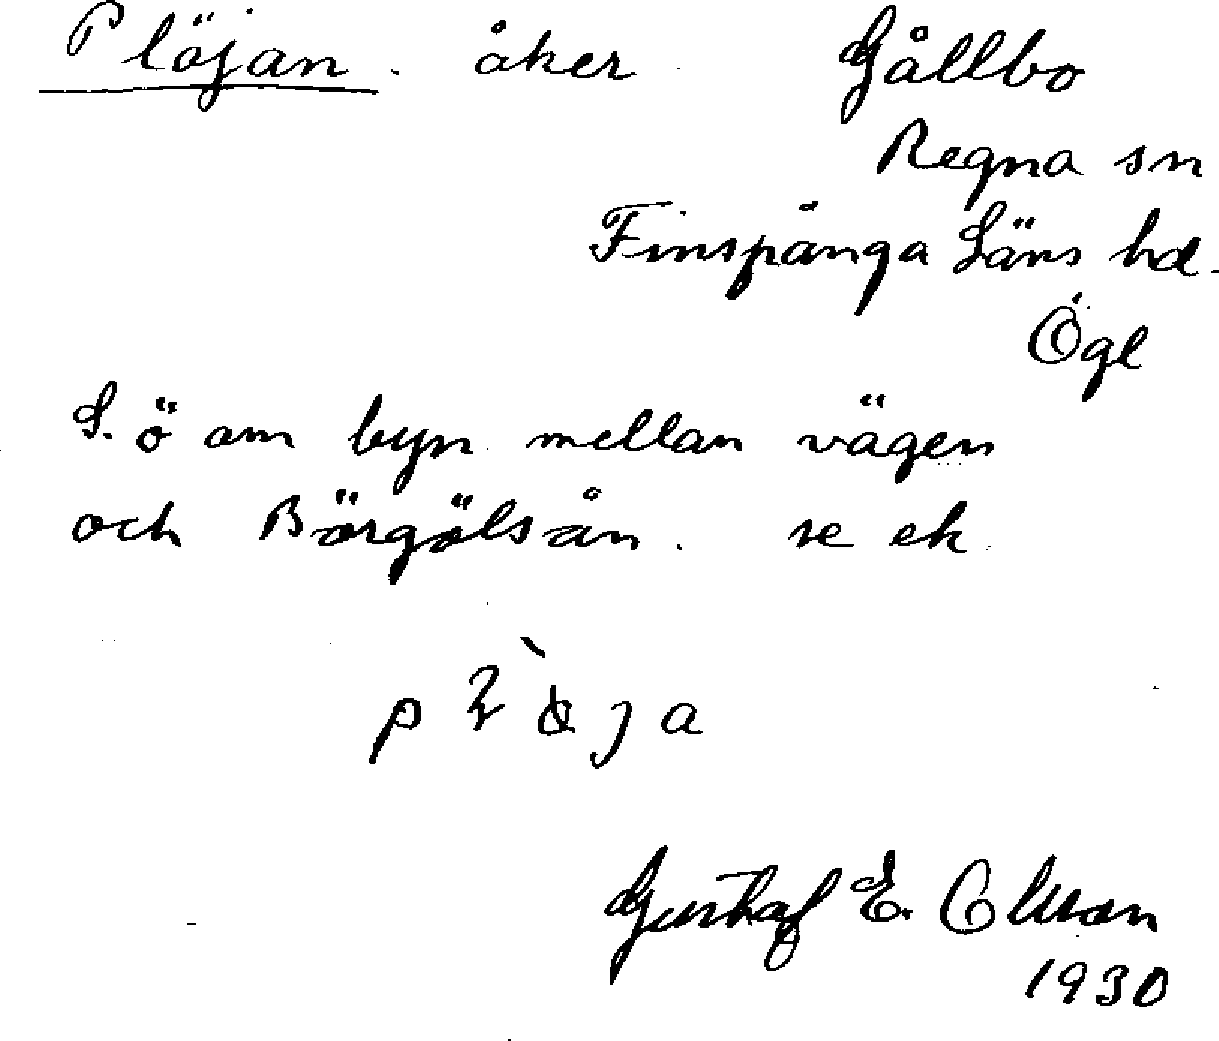 Plöjan. åker. Gållbo
Regna sn
Finspånga Läns hd.
Ögl
S. ö om byn mellan vägen
och Börgölsån. se ek.
Gustaf E. Olsson
1930